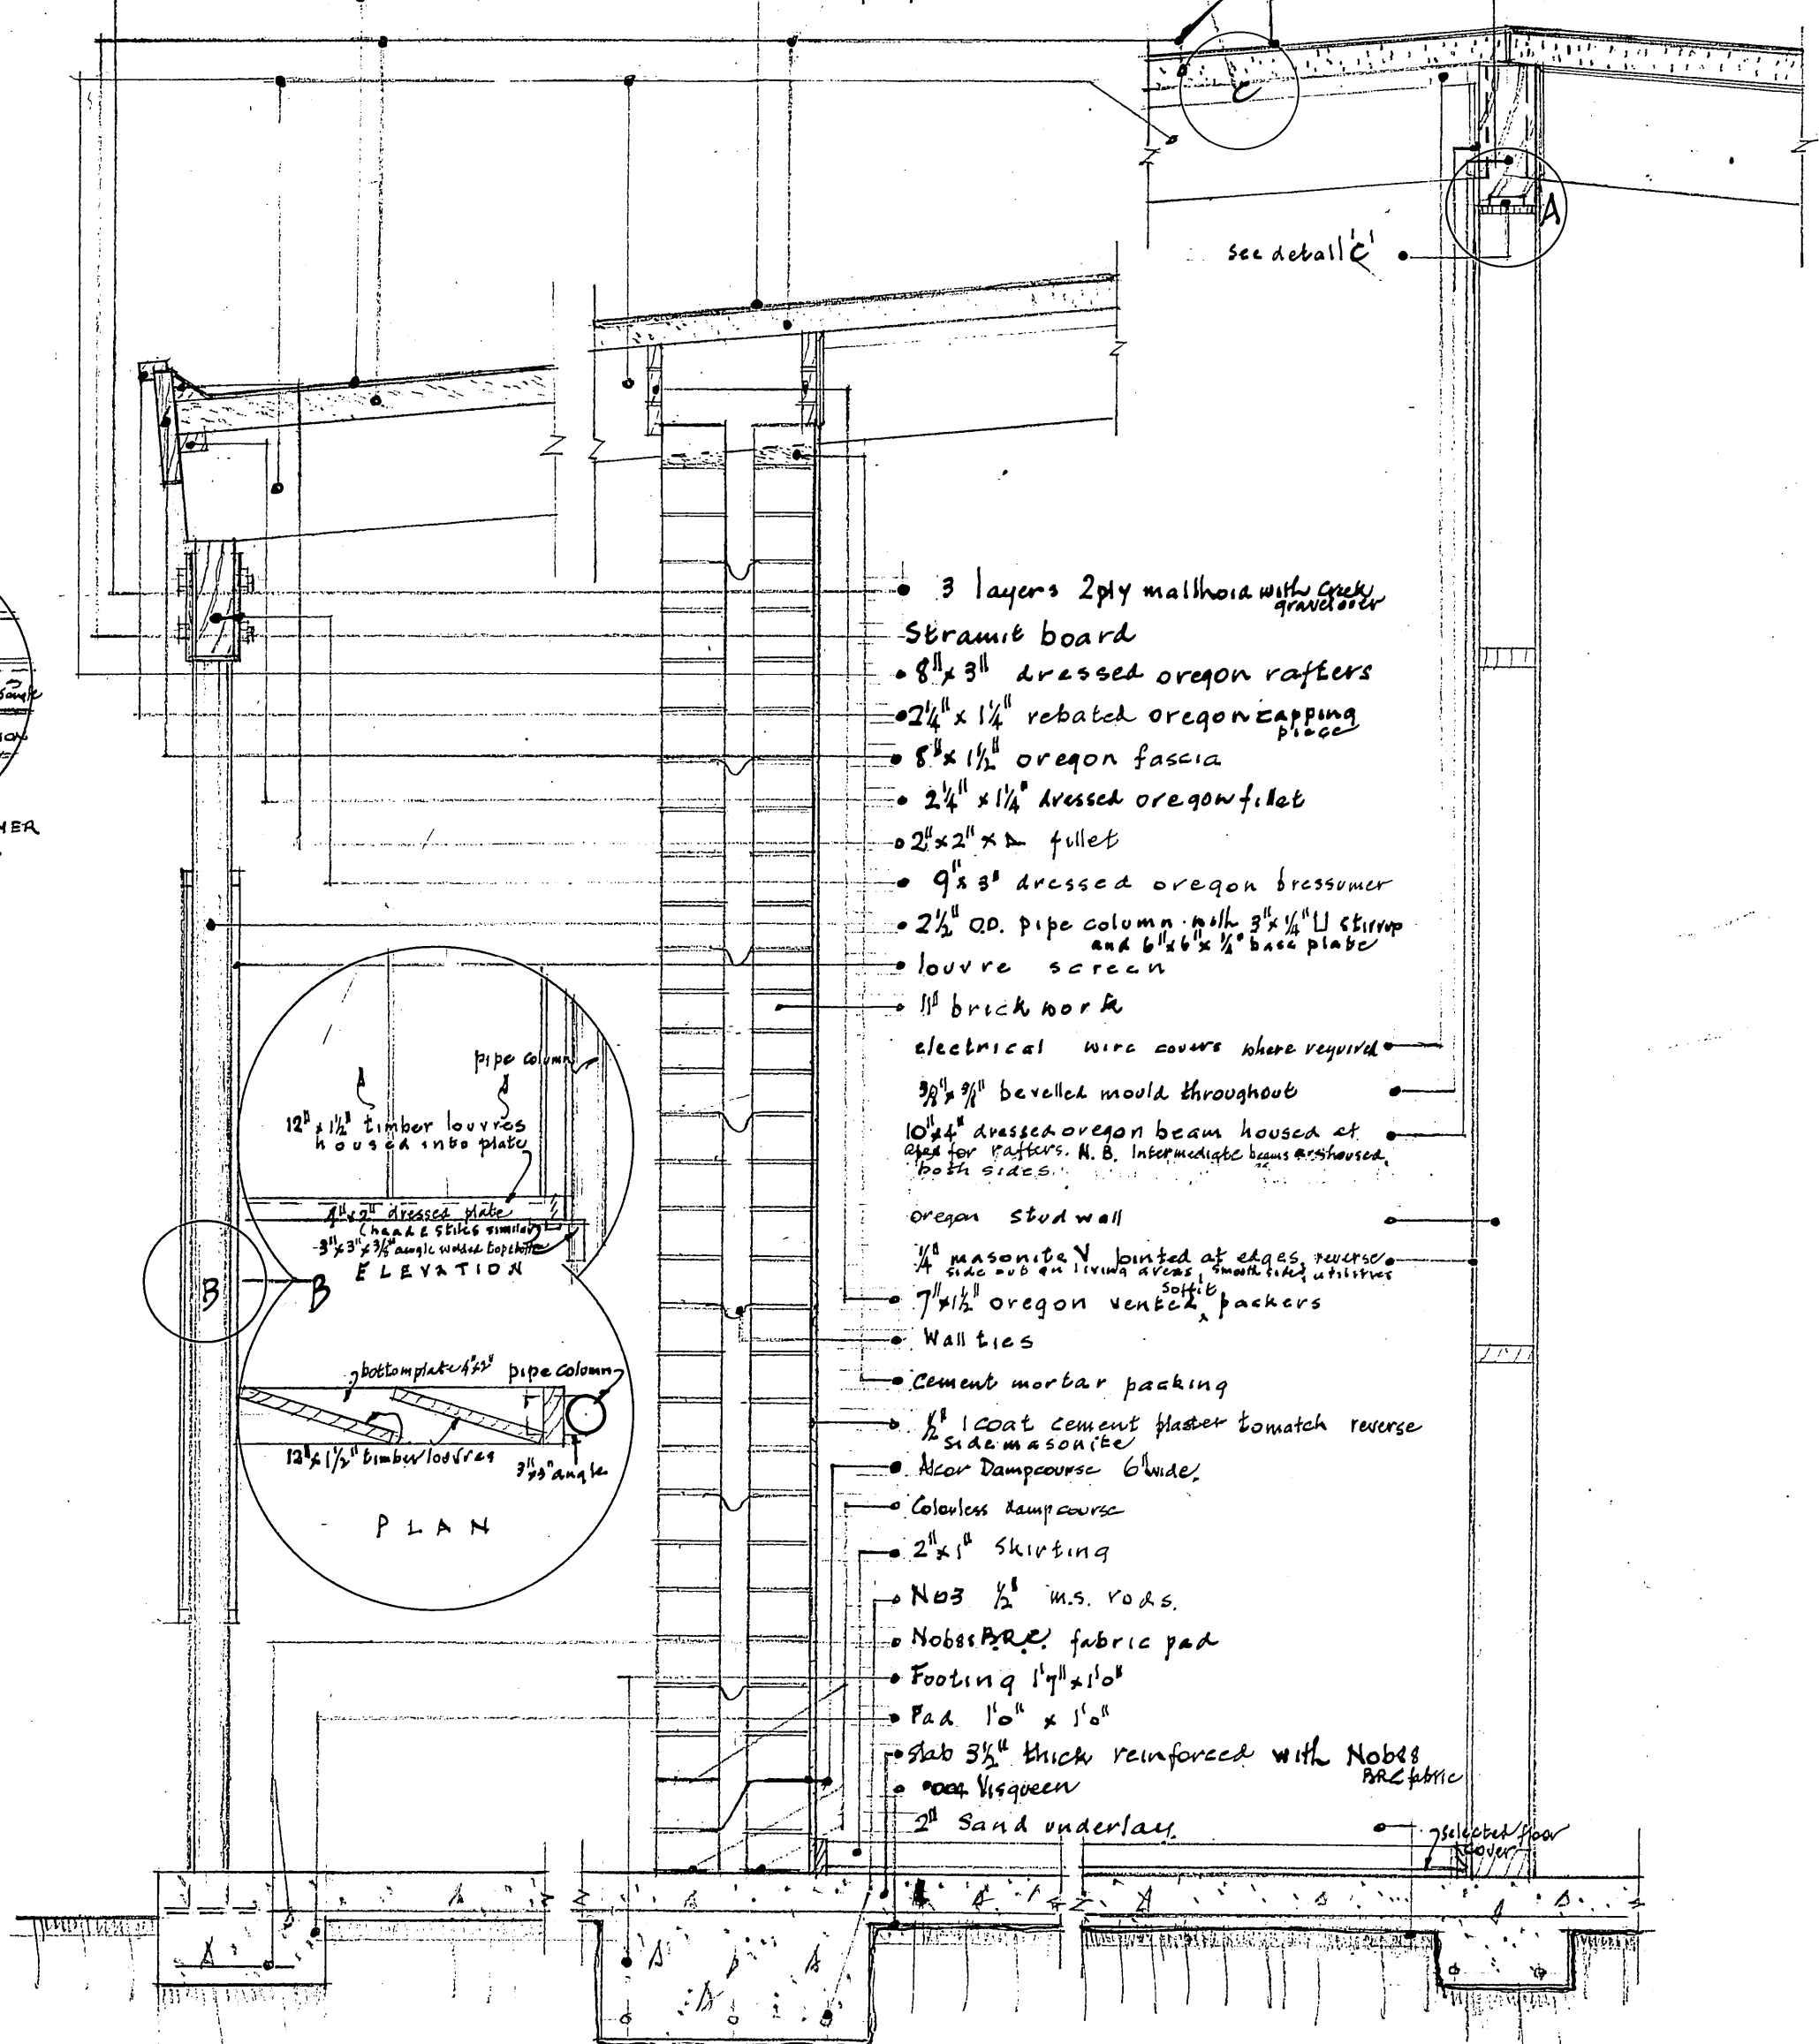 C
A
see detail 'C'
3 layers 2ply malthoid with creek
gravel over
Stramit board
8" x 3" dressed oregon rafters
2¼" x 1¼" rebated oregon capping
piece
8" x 1½" oregon fascia
2¼" x 1¼" dressed oregon fillet
2" x 2" x fillet
9" x 3" dressed oregon bressumer
2½" O.D. pipe column with 3" x ¼" U stirrup
and 6" x 6" x ¼" base plate
louvre screen
11" brickwork
electrical wire covers where required
bevelled mould throughout
10" x 4" dressed oregon beam housed at
apex for rafters. N.B. Intermediate beams are housed
both sides.
oregon stud wall
¼" masonite V jointed at edges, reverse
side out on living areas, smooth side, utilities
soffit
7" x 1½" oregon vented packers
Wall ties
Cement mortar packing
½" 1 coat cement plaster to match reverse
side masonite
Alcor Dampcourse 6" wide.
Colorless dampcourse
2" x 1" skirting
No3 ½" m.s. rods.
No688 B.R.C. fabric pad
Footing 1'7" x 1'0"
Pad 1'0" x 1'0"
slab 3½" thick reinforced with No688
BRC fabric
.004 Visqueen
2" Sand underlay.
selected floor
cover
pipe column
12" x 1½" timber louvres
housed into plate
4" x 2" dressed plate
(head & stiles similar)
3" x 3" x 3/8" angle welded to
ELEVATION
B
B
bottom plate 4" x 2"
pipe column
12" x 1½" timber louvres
3" x 3" angle
PLAN